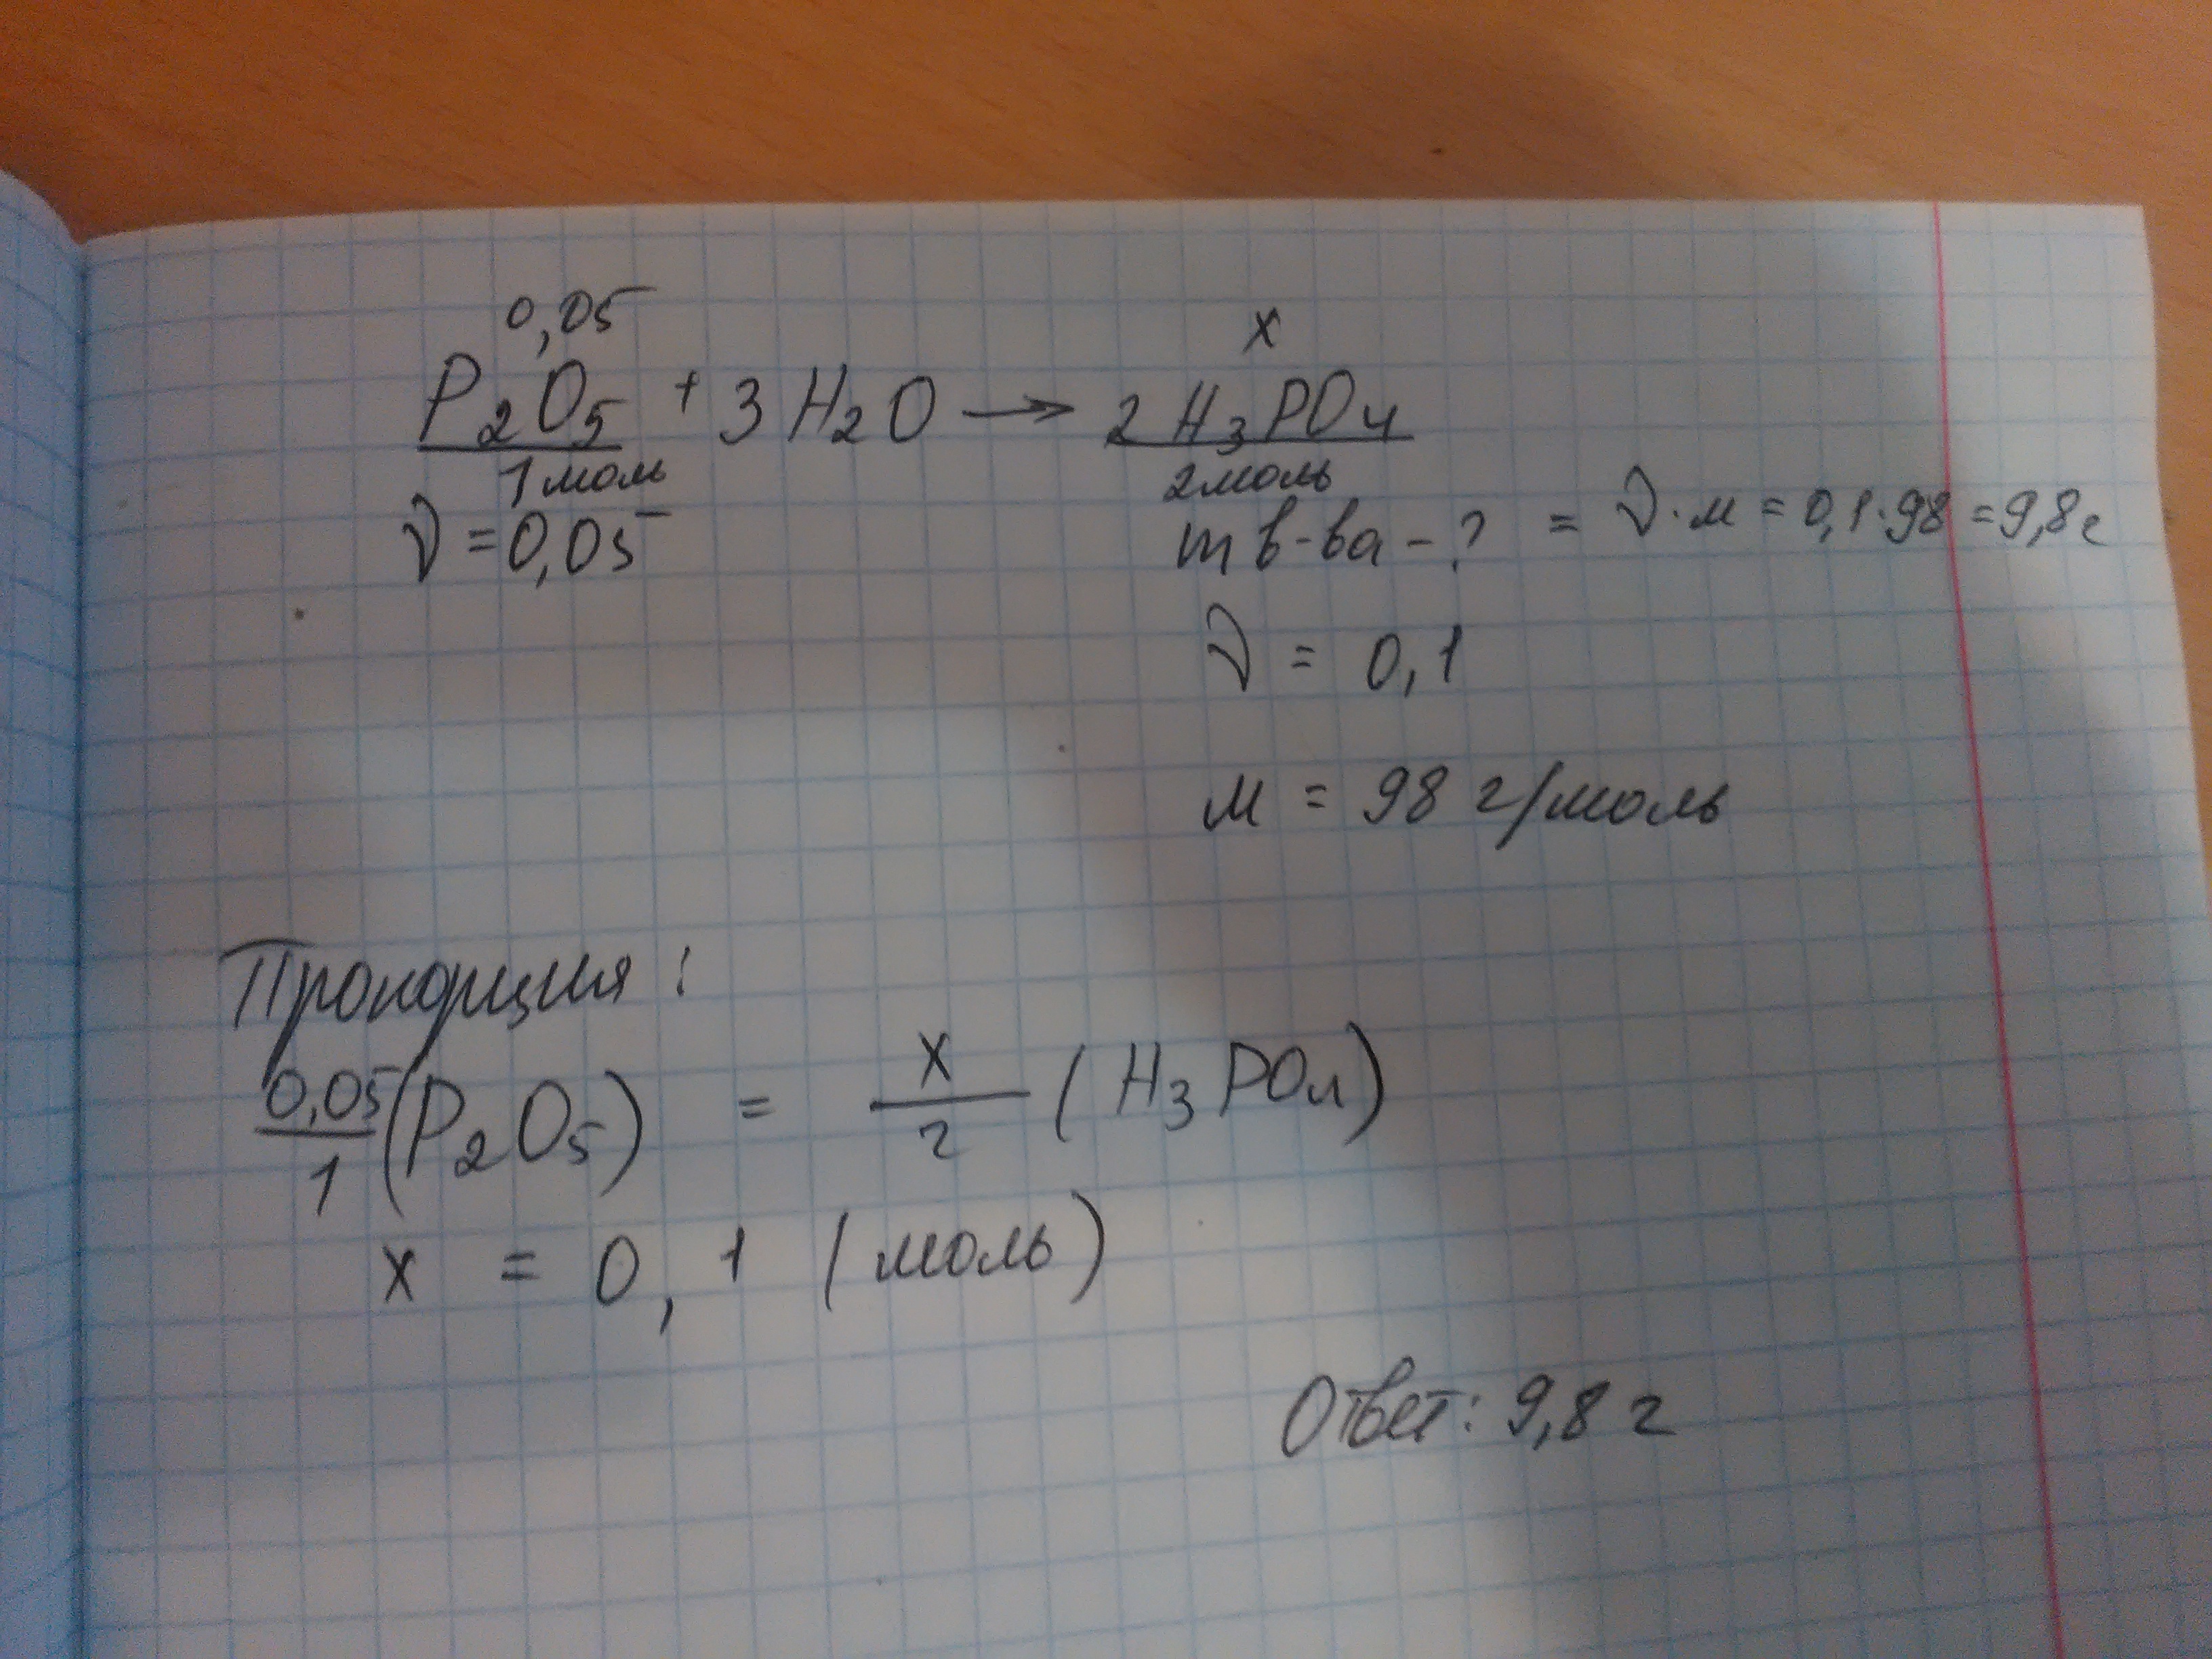 0,05 x
P2O5 + 3H2O → 2H3PO4
1 моль 2 моль
ν = 0,05 m в-ва - ? = ν · м = 0,1 · 98 = 9,8 г
ν = 0,1
м = 98 г/моль
Пропорция:
0,05/1 (P2O5) = x/2 (H3PO4)
x = 0,1 (моль)
Ответ: 9,8 г